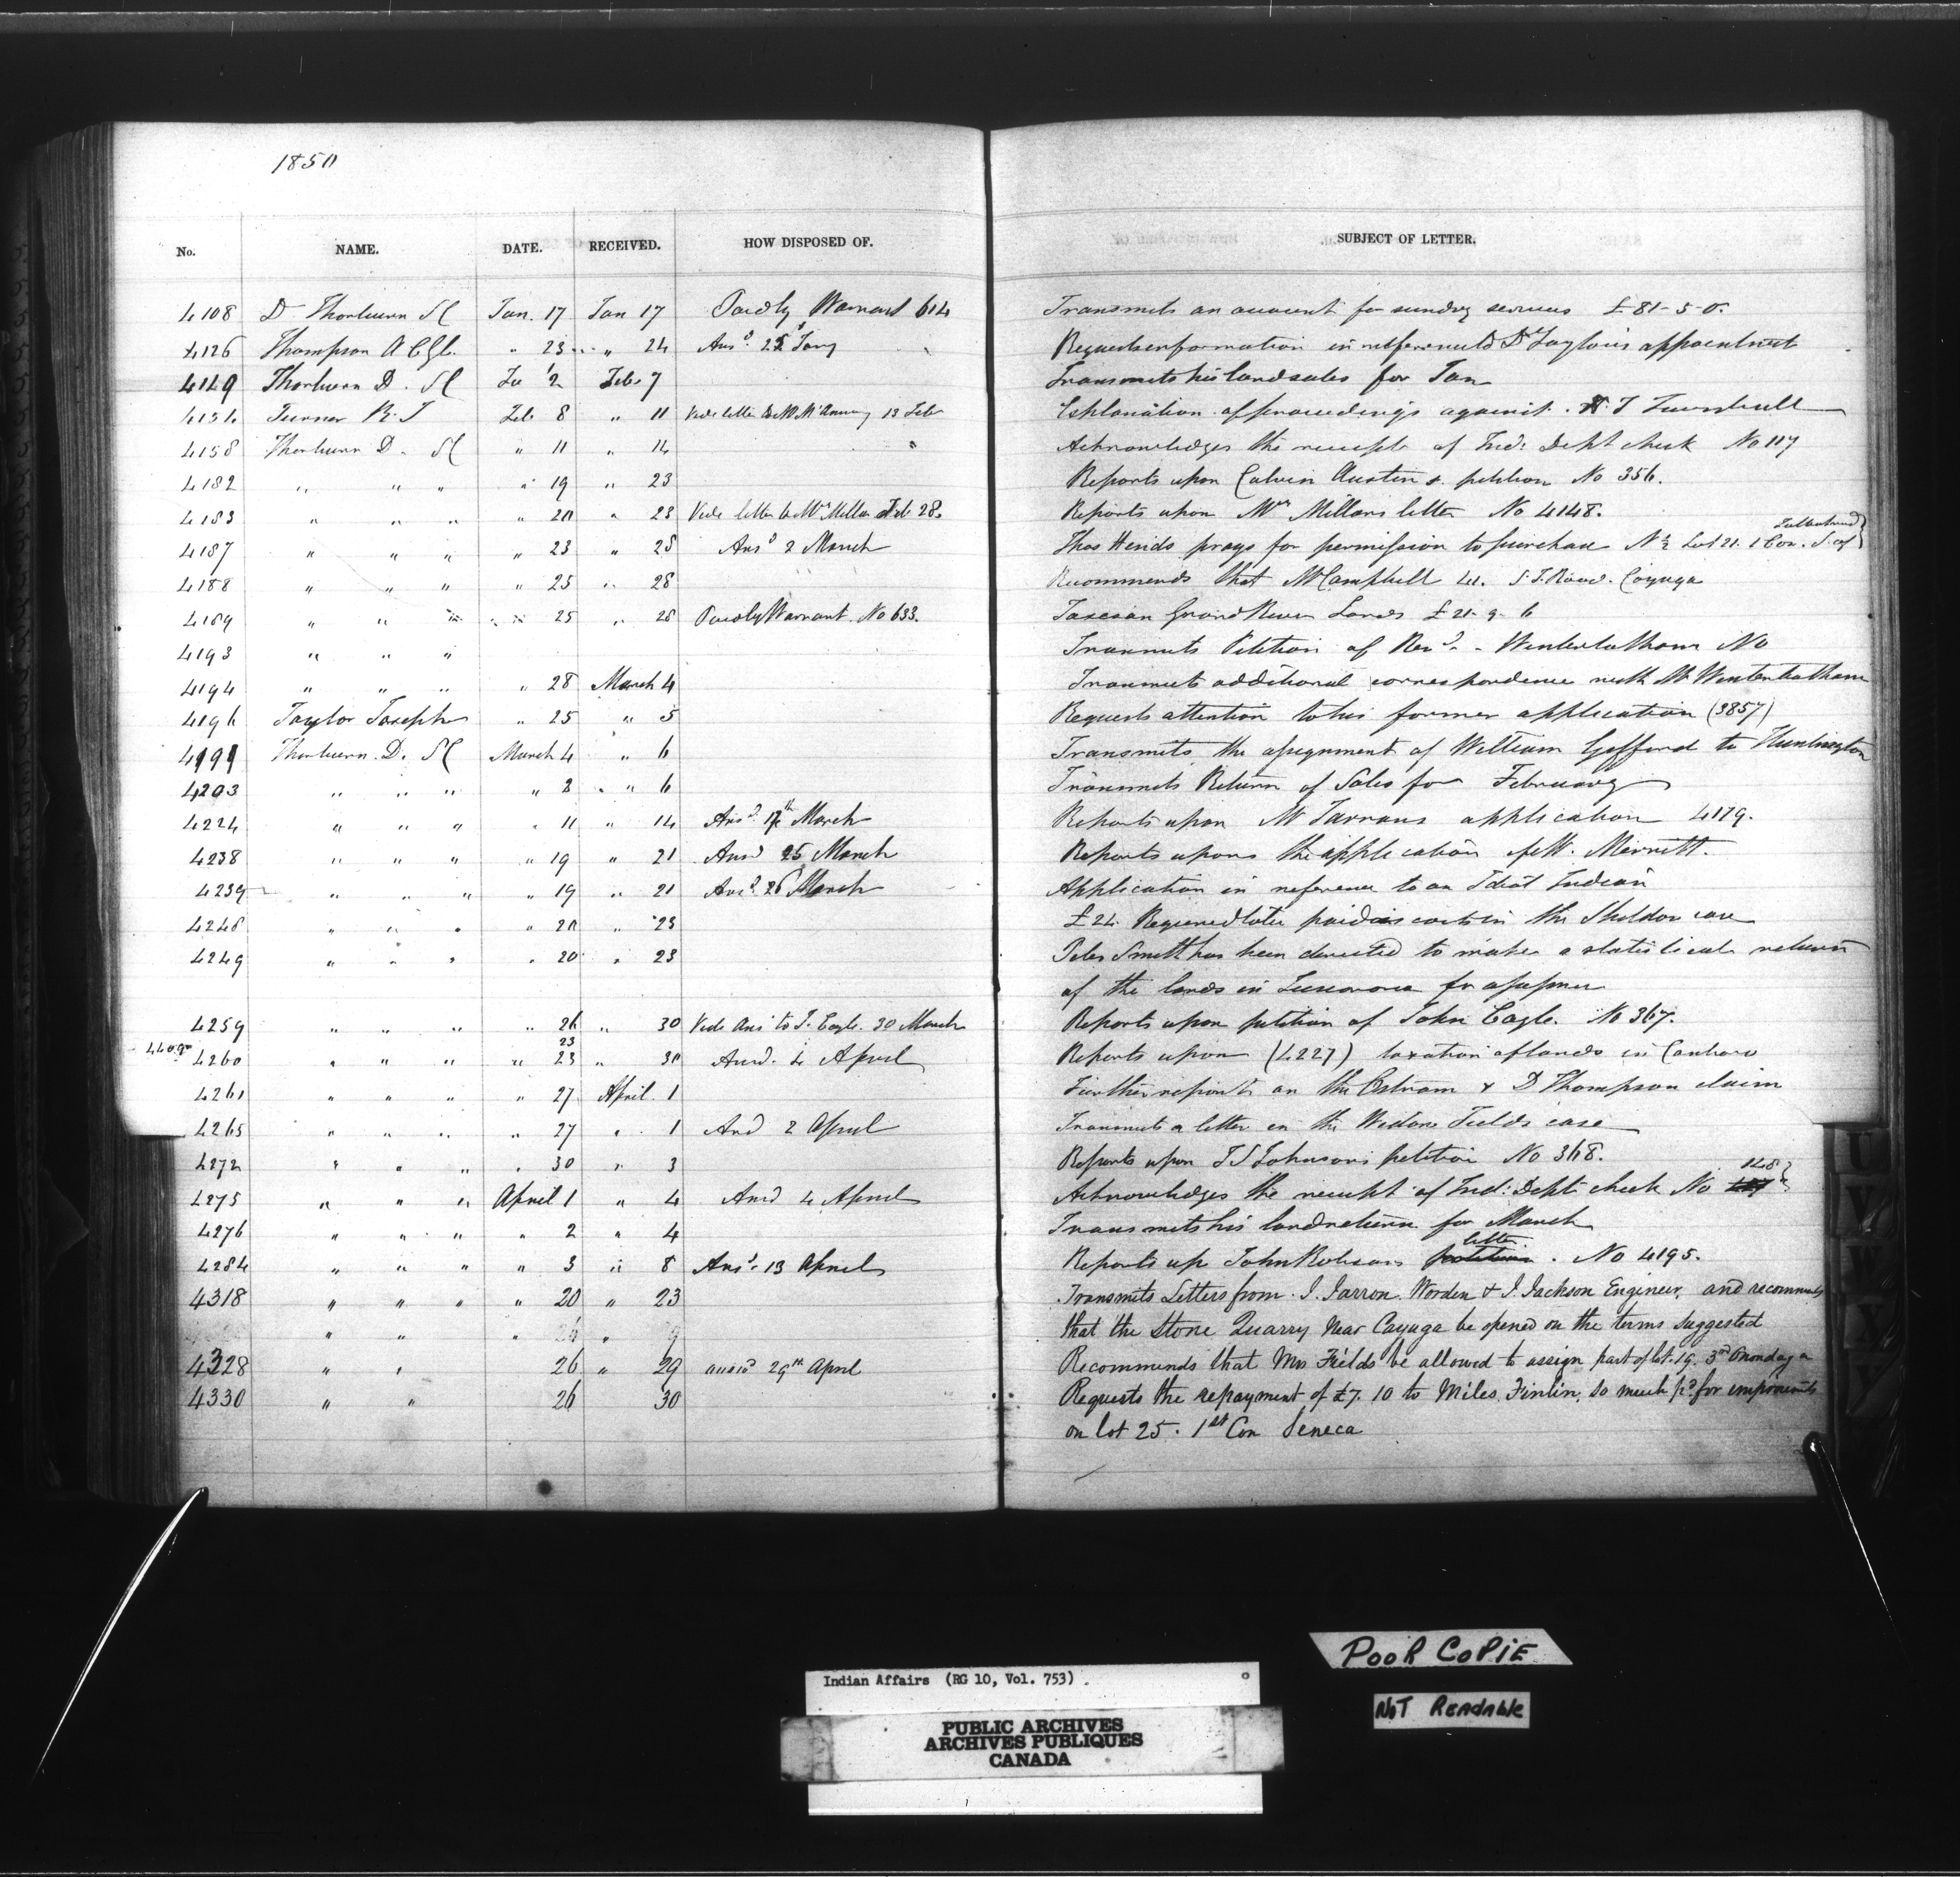 1850
No. NAME. DATE. RECEIVED. HOW DISPOSED OF. SUBJECT OF LETTER.
4108 D Thorburn Jan. 17 Jan 17 Paid by Warrant 614 Transmits an account for sundry services £81-5-0.
4126 Thompson A " 23 " 24 Ansd 25 Jany Requests information in reference to Dr Taylors appointment
4149 Thorburn D. 2 Feb 7 Transmits his land sales for Jan
Turner R. J Feb 8 " 11 Vide letter to 13 Feb Explanation of proceedings against J Turnbull
4158 Thorburn D. " 11 " 14 Acknowledges the receipt of Ind: Dept check No 117
4182 " " " " 19 " 23 Reports upon Calvin Austin s. petition No 356.
4183 " " " " 20 " 23 Vide letter to Mrs Millar Feb 28. Reports upon Mrs Millars letter No 4148.
4187 " " " " 23 " 25 Ansd 2 March Thos Hinds prays for permission to purchase N ½ Lot 21. 1 Con. S. of
4188 " " " " 25 " 28 Recommends that Mr Campbell Cayuga
4189 " " " " 25 " 28 Paid by Warrant No 633. Taxes on Grand River Lands £21-9-6
4193 " " " Transmits Petition of Revd - Winterbotham No
4194 " " " " 28 March 4 Transmits additional correspondence with Mr Winterbotham
4196 Taylor Joseph " 25 " 5 Requests attention to his former application (3857)
4199 Thorburn. D. March 4 " 6 Transmits the assignment of William Gifford to Huntington
4203 " " " " 2 " 6 Transmits Return of Sales for February
4224 " " " " 11 " 14 Ansd 17th March Reports upon Mr application 4179.
4238 " " " " 19 " 21 Ansd 25 March Reports upon the application of W. Merritt.
4239 " " " " 19 " 21 Ansd 26 March Application in reference to an Idiot Indian
4248 " " " " 20 " 23 £24. Required to be paid as costs in the Sheldon case
4249 " " " " 20 " 23 Peter Smith has been directed to make a statistical return
of the lands in Tuscarora for assessmt
4259 " " " " 26 " 30 Vide Ans to J. Cagle. 30 March Reports upon petition of John Cagle. No 367.
23
4260 " " " " 23 " 30 Ansd. 4 April Reports upon (4227) taxation of lands in Canboro
4261 " " " " 27 April 1 Further reports on the Ostrom & D Thompson claim
4265 " " " " 27 " 1 Ansd 2 April Transmits a letter in the Widow Fields case
4272 " " " " 30 " 3 Reports upon J S Johnsons petition No 368.
148
4275 " " " April 1 " 4 Ansd 4 April Acknowledges the receipt of Ind: Dept check No
4276 " " " " 2 " 4 Transmits his land return for March
letter
4284 " " " " 3 " 8 Ansd 13 April Reports up John Robsons petition. No 4195.
4318 " " " " 20 " 23 Transmits Letters from Warden & J. Jackson Engineer, and recommends
" " " 26 " 9 that the Stone Quarry near Cayuga be opened on the terms suggested
4328 " " 26 " 29 answd 29th April Recommends that Mrs Fields be allowed to assign part of lot. 19. 3rd Onondaga
4330 " " 26 30 Requests the repayment of £7. 10 to Miles Finlin, so much pd for improvements
on lot 25. 1st Con Seneca
POOR COPIE
NOT READABLE
Indian Affairs (RG 10, Vol. 753)
PUBLIC ARCHIVES
ARCHIVES PUBLIQUES
CANADA